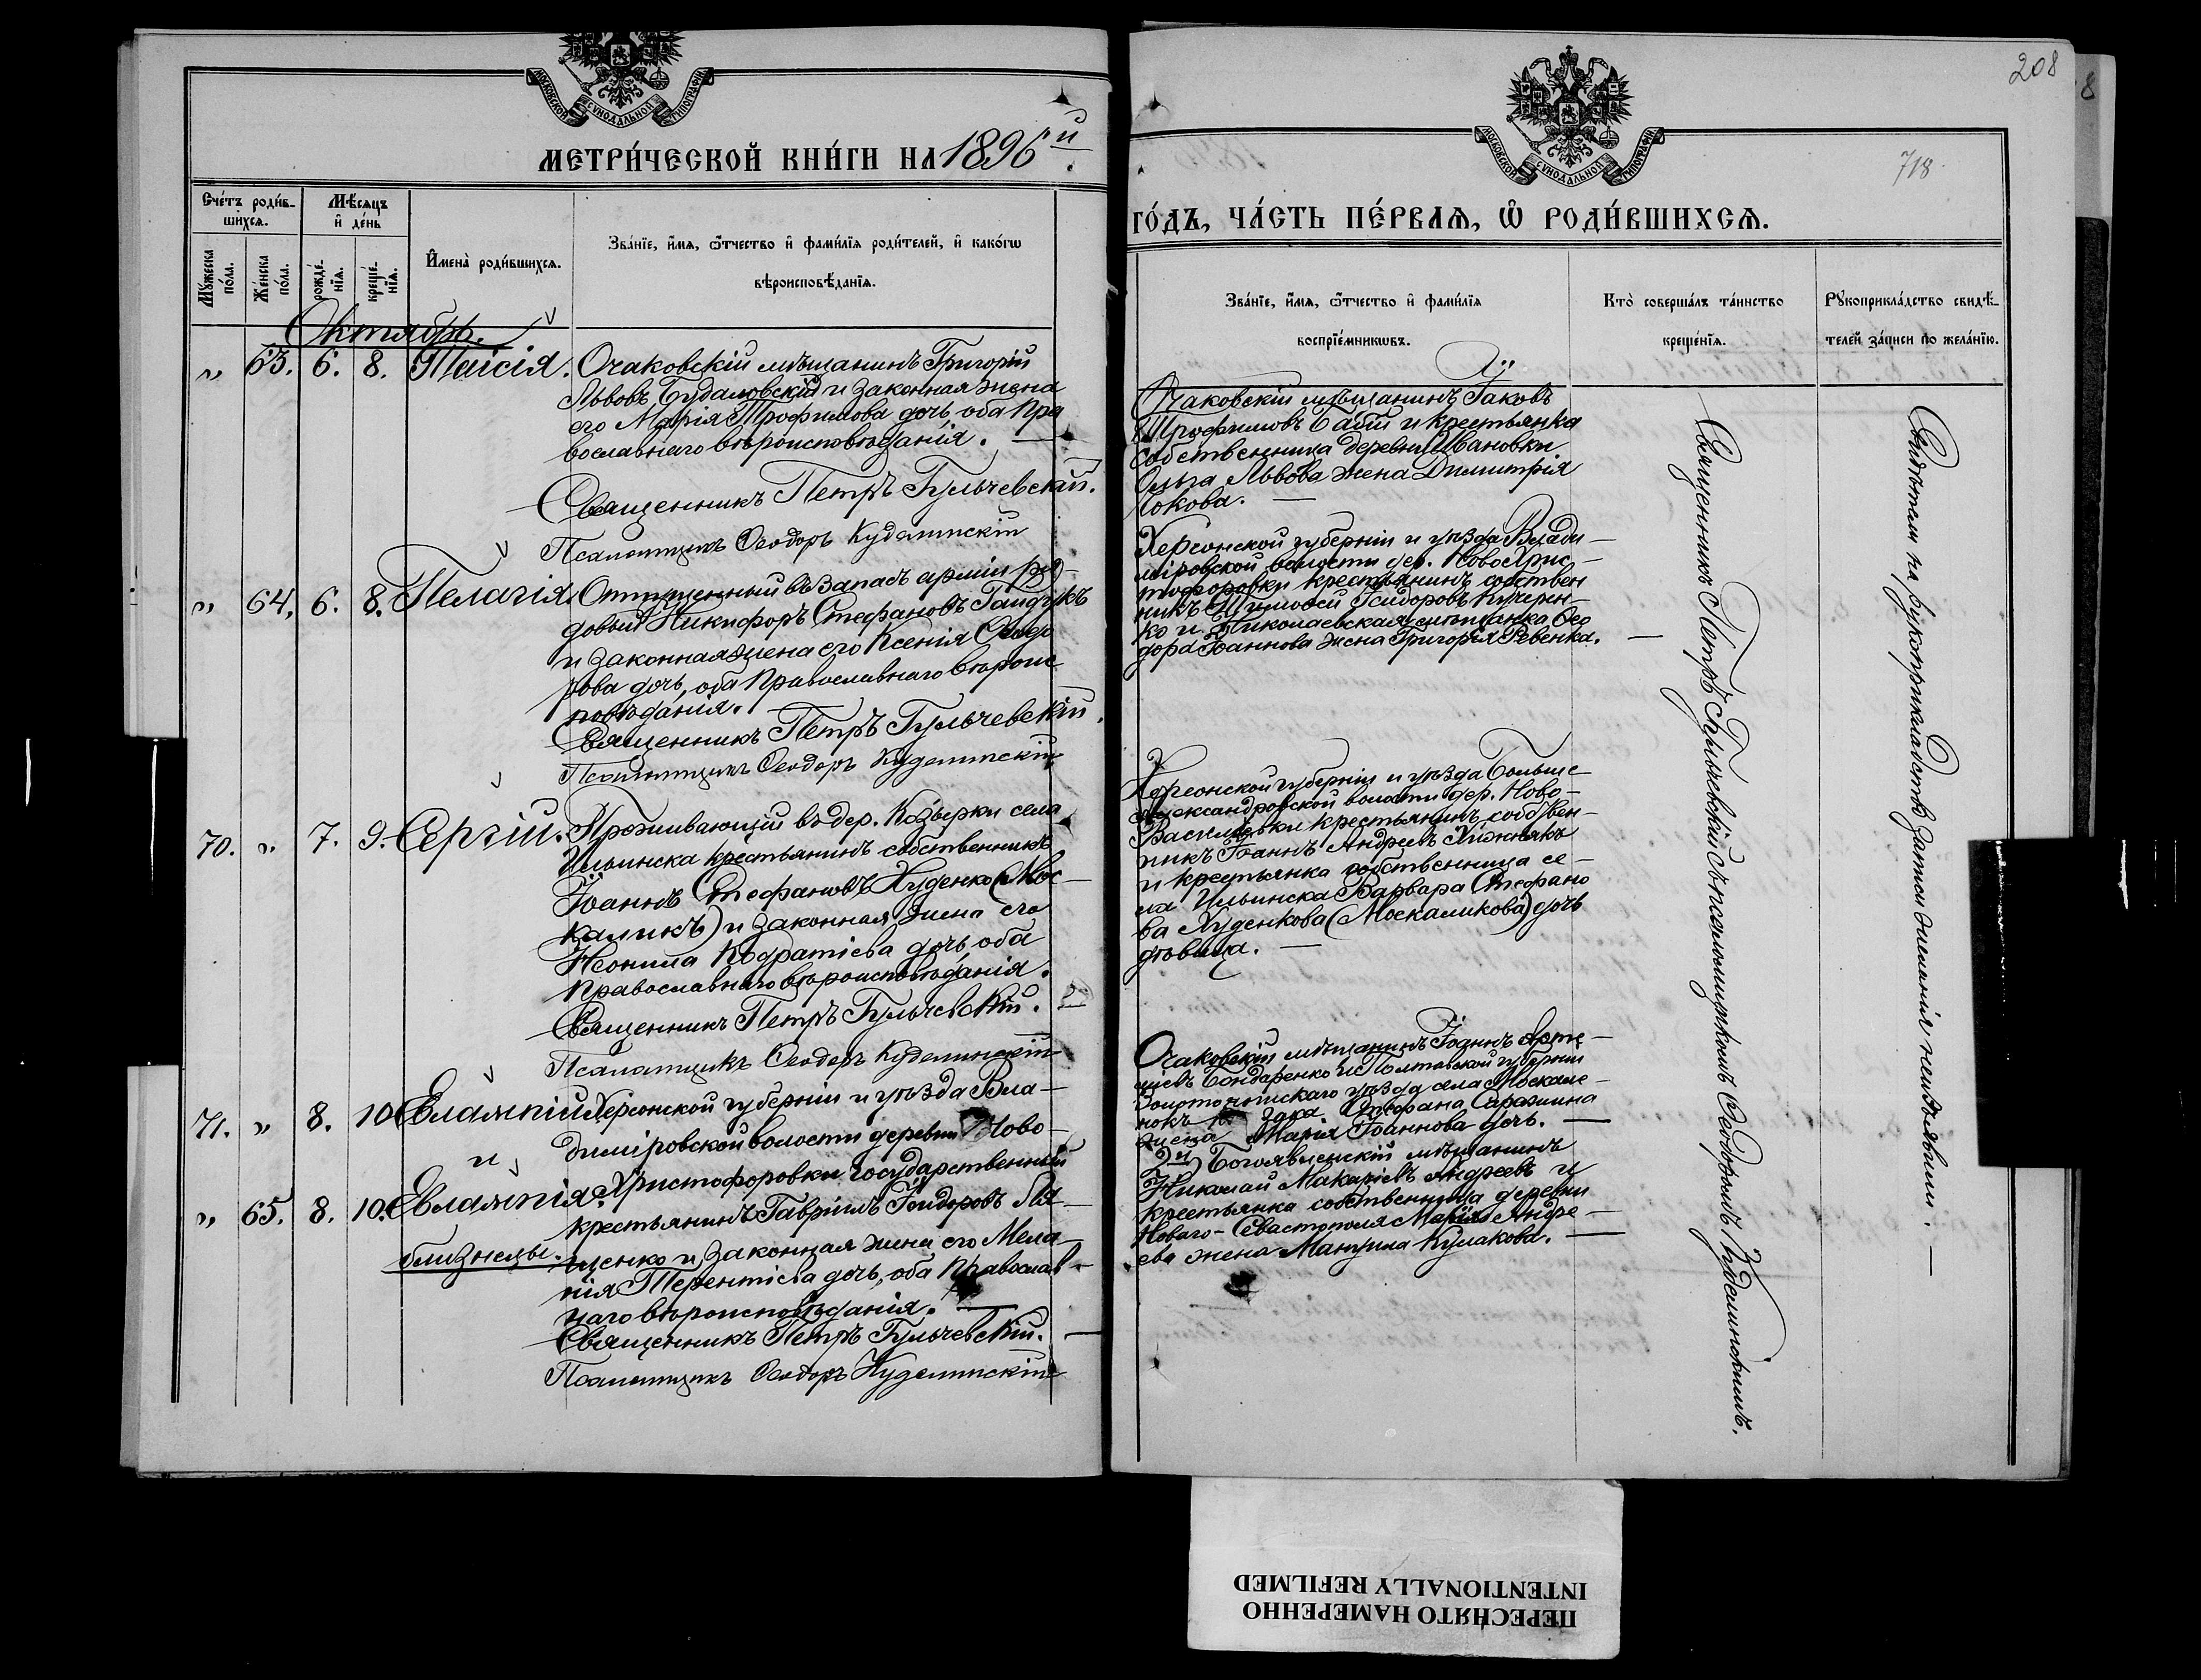 МОСКОВСКОЙ СѴНОДАЛЬНОЙ ТИПОГРАФІИ
МЕТРИ́ЧЕСКОЙ КНИ́ГИ НА 1896й
Сче́тъ роди́в-
шихсѧ.
Мѣ́сѧцъ
и҆ де́нь
Мꙋ́жеска
по́ла.
Же́нска
по́ла.
рожде́-
нїѧ.
креще́-
нїѧ.
И҆мена̀ роди́вшихсѧ.
Зва́нїе, и҆́мѧ, ѻ҆́тчество и҆ фами́лїѧ роди́телей, и҆ како́гѡ
вѣроисповѣ́данїѧ.
Октябрь.
" 63. 6. 8. Таисія. Очаковскій мѣщанинъ Григорій
Львовъ Будаловскій и законная жена
его Марія Трофимова дочь, оба Пра
вославнаго вѣроисповѣданія. —
Священникъ Петръ Гульчевскій.
Псаломщикъ Ѳеодоръ Куделинскій
" 64. 6. 8. Пелагія. Отпущенный въ запасъ арміи ря-
довый Никифоръ Стефановъ Гайдукъ
и законная жена его Ксенія Ѳеодо
рова дочь, оба Православнаго вѣроис
повѣданія.
Священникъ Петръ Гульчевскій.
Псаломщикъ Ѳеодоръ Куделинскій
70. " 7. 9. Сергій. Проживающій въ дер. Козырки села
Ильинска крестьянинъ собственникъ
Іоаннъ Стефановъ Худенко (Мос-
каликъ) и законная жена его
Неонила Кодратіева дочь, оба
Православнаго вѣроисповѣданія.
Священникъ Петръ Гульчевскій.
Псаломщикъ Ѳеодоръ Куделинскій
71. " 8. 10 Евлампій Херсонской губерніи и уѣзда Вла-
диміровской волости деревни Ново-
и Христофоровки государственный
" 65. 8. 10. Евлампія. крестьянинъ Гавріилъ Ісидоровъ Ля-
близнецы. щенко и законная жена его Мела-
нія Терентіева дочь, оба Православ-
наго вѣроисповѣданія. —
Священникъ Петръ Гульчевскій. —
Псаломщикъ Ѳеодоръ Куделинскій
208
8
718.
МОСКОВСКОЙ СѴНОДАЛЬНОЙ ТИПОГРАФІИ
ГО́ДЪ, ЧА́СТЬ ПЕ́РВАѦ, Ѡ҆ РОДИ́ВШИХСѦ.
Зва́нїе, и҆́мѧ, ѻ҆́тчество и҆ фами́лїѧ
воспрїе́мникѡвъ.
Кто̀ соверша́лъ та́инство
креще́нїѧ.
Рꙋкоприкла́дство свидѣ́-
телей за́писи по жела́нїю.
Очаковскій мѣщанинъ Іаковъ
Трофимовъ Бабій и крестьянка
собственница деревни Ивановки
Ольга Львова жена Димитрія
Чокова. —
Херсонской губерніи и уѣзда Влади-
міровской волости дер. НовоХрис-
тофоровки крестьянинъ собствен
никъ Тимоѳей Ісидоровъ Кучерен-
ко и Николаевская мѣщанка Ѳео
дора Іоаннова жена Григорія Ревенка. —
Херсонской губерніи и уѣзда Больше
Александровской волости дер. Ново-
Васильевки крестьянинъ собствен-
никъ Іоаннъ Андреевъ Хижнякъ
и крестьянка собственница се-
ла Ильинска Варвара Стефано
ва Худенкова (Москаликова) дочь
дѣвица. —
Очаковскій мѣщанинъ Іоаннъ Арте-
міевъ Бондаренко и Полтавской губерніи
Золотоношскаго уѣзда села Москале-
нокъ каза Стефана Саражина
жена Марія Іоаннова дочь. —
2й) Богоявленскій мѣщанинъ
Николай Макаріевъ Андреевъ и
крестьянка собственница деревни
Новаго-Севастополя Марія Андре-
ева жена Мануила Кулакова. —
Священникъ Петръ Гульчевскій съ псаломщикомъ Ѳеодоромъ Куделинскимъ.
Свидѣтели на рукоприкладство затѣмъ желанія неизъявили. —
ПЕРЕСНЯТО НАМЕРЕННО
INTENTIONALLY REFILMED